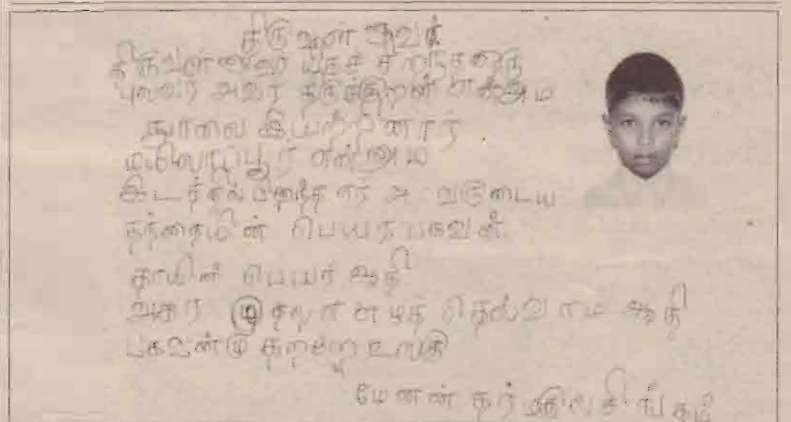 திருவள்ளுவர்
திருவள்ளுவர் மிகச் சிறந்த
புலவர் அவர் திருக்குறள் என்னும்
நூலை இயற்றினார்
மயிலாப்பூர் என்னும்
இடத்தில் பிறந்தார் அவருடைய
தந்தையின் பெயர் பகவன்.
தாயின் பெயர் ஆதி
அகர முதல எழுத் தெல்லாம் ஆதி
பகவன் முதற்றே உலகு
மேனன் தர்மகுலசிங்கம்